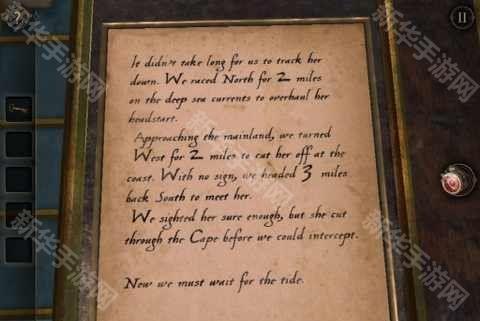 ?
It didn't take long for us to track her
down. We raced North for 2 miles
on the deep sea currents to overhaul her
headstart.
Approaching the mainland, we turned
West for 2 miles to cut her off at the
coast. With no sign, we headed 3 miles
back South to meet her.
We sighted her sure enough, but she cut
through the Cape before we could intercept.
Now we must wait for the tide.
新华手游网
新华手游网
新华手游网
新华手游网
新华手游网
新华手游网
新华手游网
新华手游网